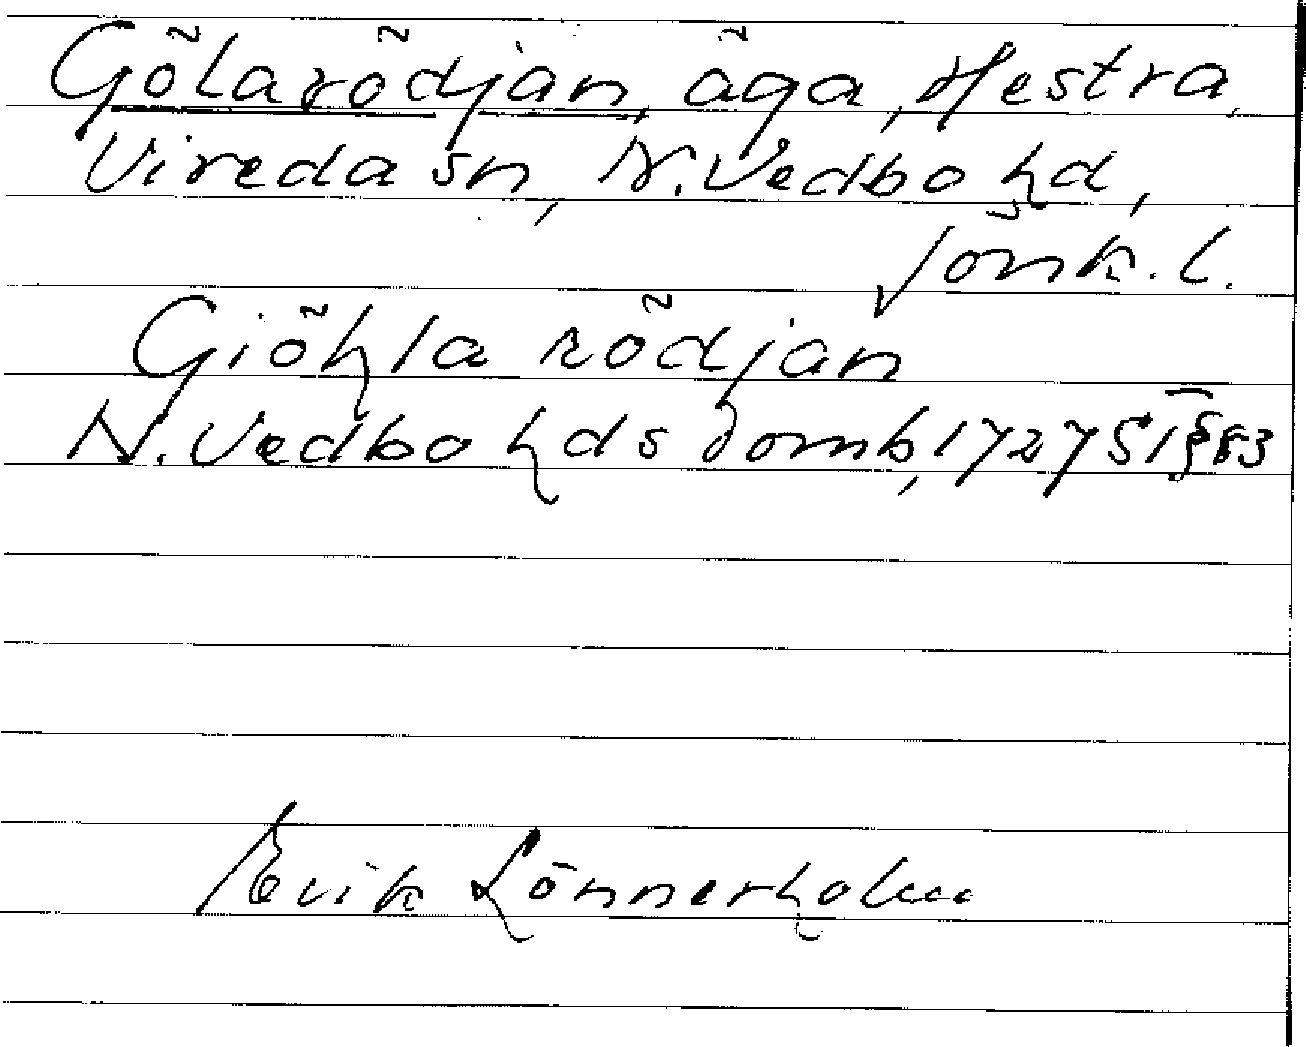 Gölarödjan, äga, Hestra,
Vireda sn, N. Vedbo hd,
Jönk. l.
Giöhla rödjan
N. Vedbo hds domb, 1727 § 83
Erik Lönnerholm